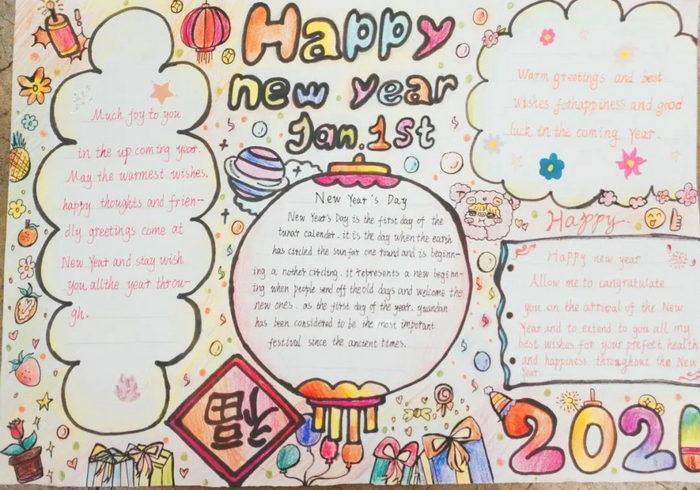 Happy
new year
Jan.1st
Much joy to you
in the up coming year.
May the warmest wishes,
happy thoughts and frien-
dly greetings come at
New Year and stay wish
you all the year throu-
gh.
Warm greetings and best
wishes forhappiness and good
luck in the coming year.
New Year's Day
New Year's Day is the first day of the
lunar calender. it is the day when the earth
has circled the sun for one round and is beginn-
ing a nother circling. it represents a new beginn-
ing when people send off the old days and welcome the
new ones. as the first day of the year. yuandan
has been considered to be the most important
festival since the ancient times.
Happy
Happy new year
Allow me to congratulate
you on the arrival of the New
Year and to extend to you all my
best wishes for your prefect health
and happiness throughout the New
Year
福
202